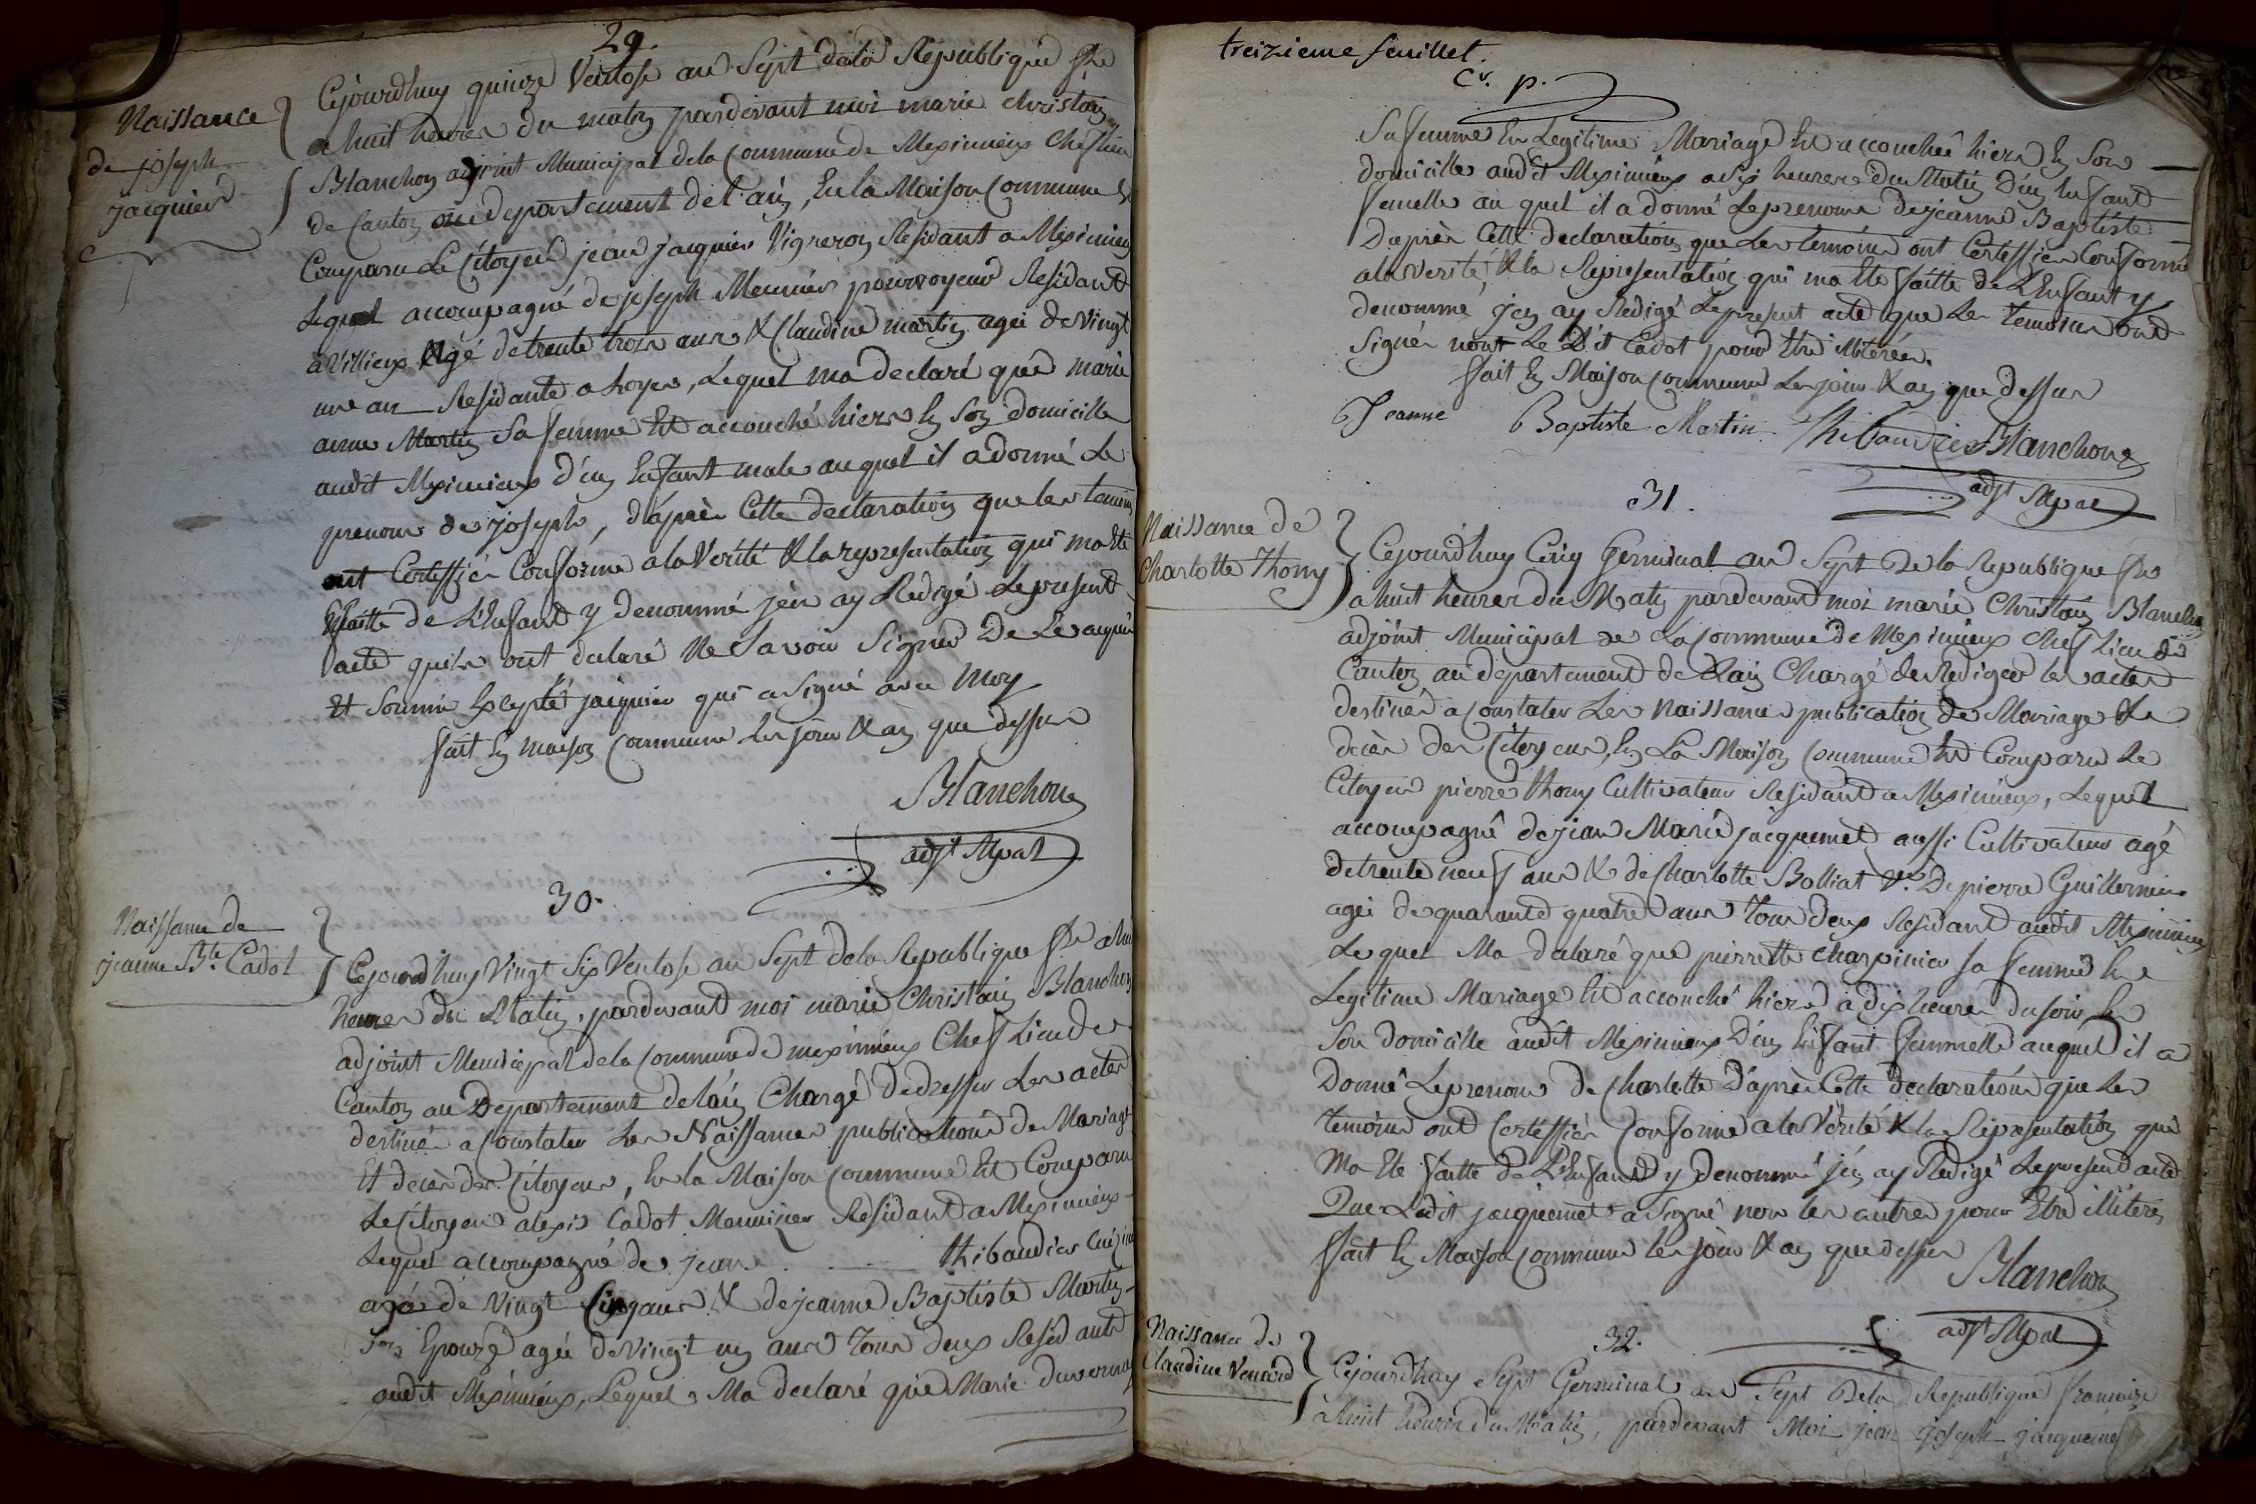 29.
Naissance
de joseph
jacquier
Cejourdhuy quinze Ventose an Sept dela Republique fse
a huit heures du matin pardevant moi marie christoin
Blanchon adjoint Municipal dela Commune de Meximieux Cheflieu
de Canton au departement de l'ain, En la Maison Commune Et
Comparu Le Citoyen jean jacquier Vigneron Residant a Meximieux
Lequel accompagné de joseph Meunier pourvoyeur Residant
a Villieux agé de trente trois ans & Claudine martin ageé de vingt
une an Residante a Loyes, Lequel ma declaré que marie
anne Martin Sa femme Et accouché hier En Son domicille
audit Meximieux d'un Enfant male auquel il a donné Le
prenom de joseph, d'aprèr Cette declaration que les temoins
ont Certiffier Conforme ala Verité & la representation qui ma Ete
faitte de L'Enfant y denommé jen ay Redigé Le present
acte quils ont declaré Ne Savoir Signer De Ce requis
et Sommé Excepté jacquier qui a Signé avec Moy
fait En maison Commune Les jour & an que dessus
Blanchon
adjt Mpal
30.
Naissance de
jeanne Bte Cadot
Cejourdhuy Vingt Six Ventose an Sept dela Republique fse a huit
heures du Matin, pardevant moi marie Christoin Blanchon
adjoint Municipal dela Commune de meximieux Chef Lieu de
Canton au Departement de lain Chargé de dresser Les actes
destinés a Constater Les Naissances publications de Mariage
Et decès des Citoyens, En la Maison Commune Est Comparu
Le Citoyen alexis Cadot Menuizier Residant a Meximieux
Lequel accompagné de jean Thibaudier
agé de Vingt Cinq ans & de jeanne Baptiste Martin
Son Epouze ageé de Vingt un ans Tous deux Residants
audit Meximieux, Lequel Ma declaré que Marie duvernay
treizieme feuillet.
Cr. p.
Sa femme En Legitime Mariage Et accouchée hier En Son
domicille audit Meximieux a Six heures du Matin D'un Enfant
femelle au quel il a donné Le prenom de jeanne Baptiste
Daprèr Cette declaration que Les temoins ont Certiffier Conforme
ala verité, & la Representation qui ma Ete faitte de L'Enfant y
denommé jen ay Redigé Le present acte que Les Temoins ont
Signér non Le Dit Cadot pour Etre illiteré.
fait En Maison Commune Les jour & an que dessus
Jeanne Baptiste Martin Thibaudier Blanchon
adjt Mpal
31.
Naissance de
Charlotte Thomy
Cejourdhuy Cinq Germinal an Sept De la Republique fse
a huit heures du Matin pardevant moi marie Christoin Blanchon
adjoint Municipal de La Commune de Meximieux Chef Lieu de
Canton au departement de Lain Chargé de Rediger les actes
destinés a Constater Les Naissances publication de Mariage & Le
decès des Citoyens, En La Maison Commune Est Comparu Le
Citoyen pierre Thomy Cultivateur Residant a Meximieux, Lequel
accompagné de jean Marie jacquemet aussi Cultivateur agé
de trente neuf ans & de Charlotte Bolliat Ve. De pierre Guillermin
ageé de quarante quatre ans Tous deux Residant audit Meximieux
Le quel Ma declaré que pierrette Charpinier Sa femme En
Legitime Mariage Et accouché hier à dix heures du soir En
Son domicille audit Meximieux D'un Enfant femmelle auquel il a
Donné Le prenom de Charlotte D'après Cette declaration que Les
temoins ont Certiffier Conforme ala Vérité & la Representation qui
Ma Ete faitte de L'Enfant y denommé jen ay Redigé Le present acte
Que Ledit jacquemet a Signé non les autres pour Etre illiterés
fait En Maison Commune les jour & an que dessus
Blanchon
adjt Mpal
32.
Naissance de
Claudine Venard
Cejourdhuy Sept Germinal an Sept Dela Republique francaize
a huit heures du Matin, pardevant Moi jean joseph jacquemet